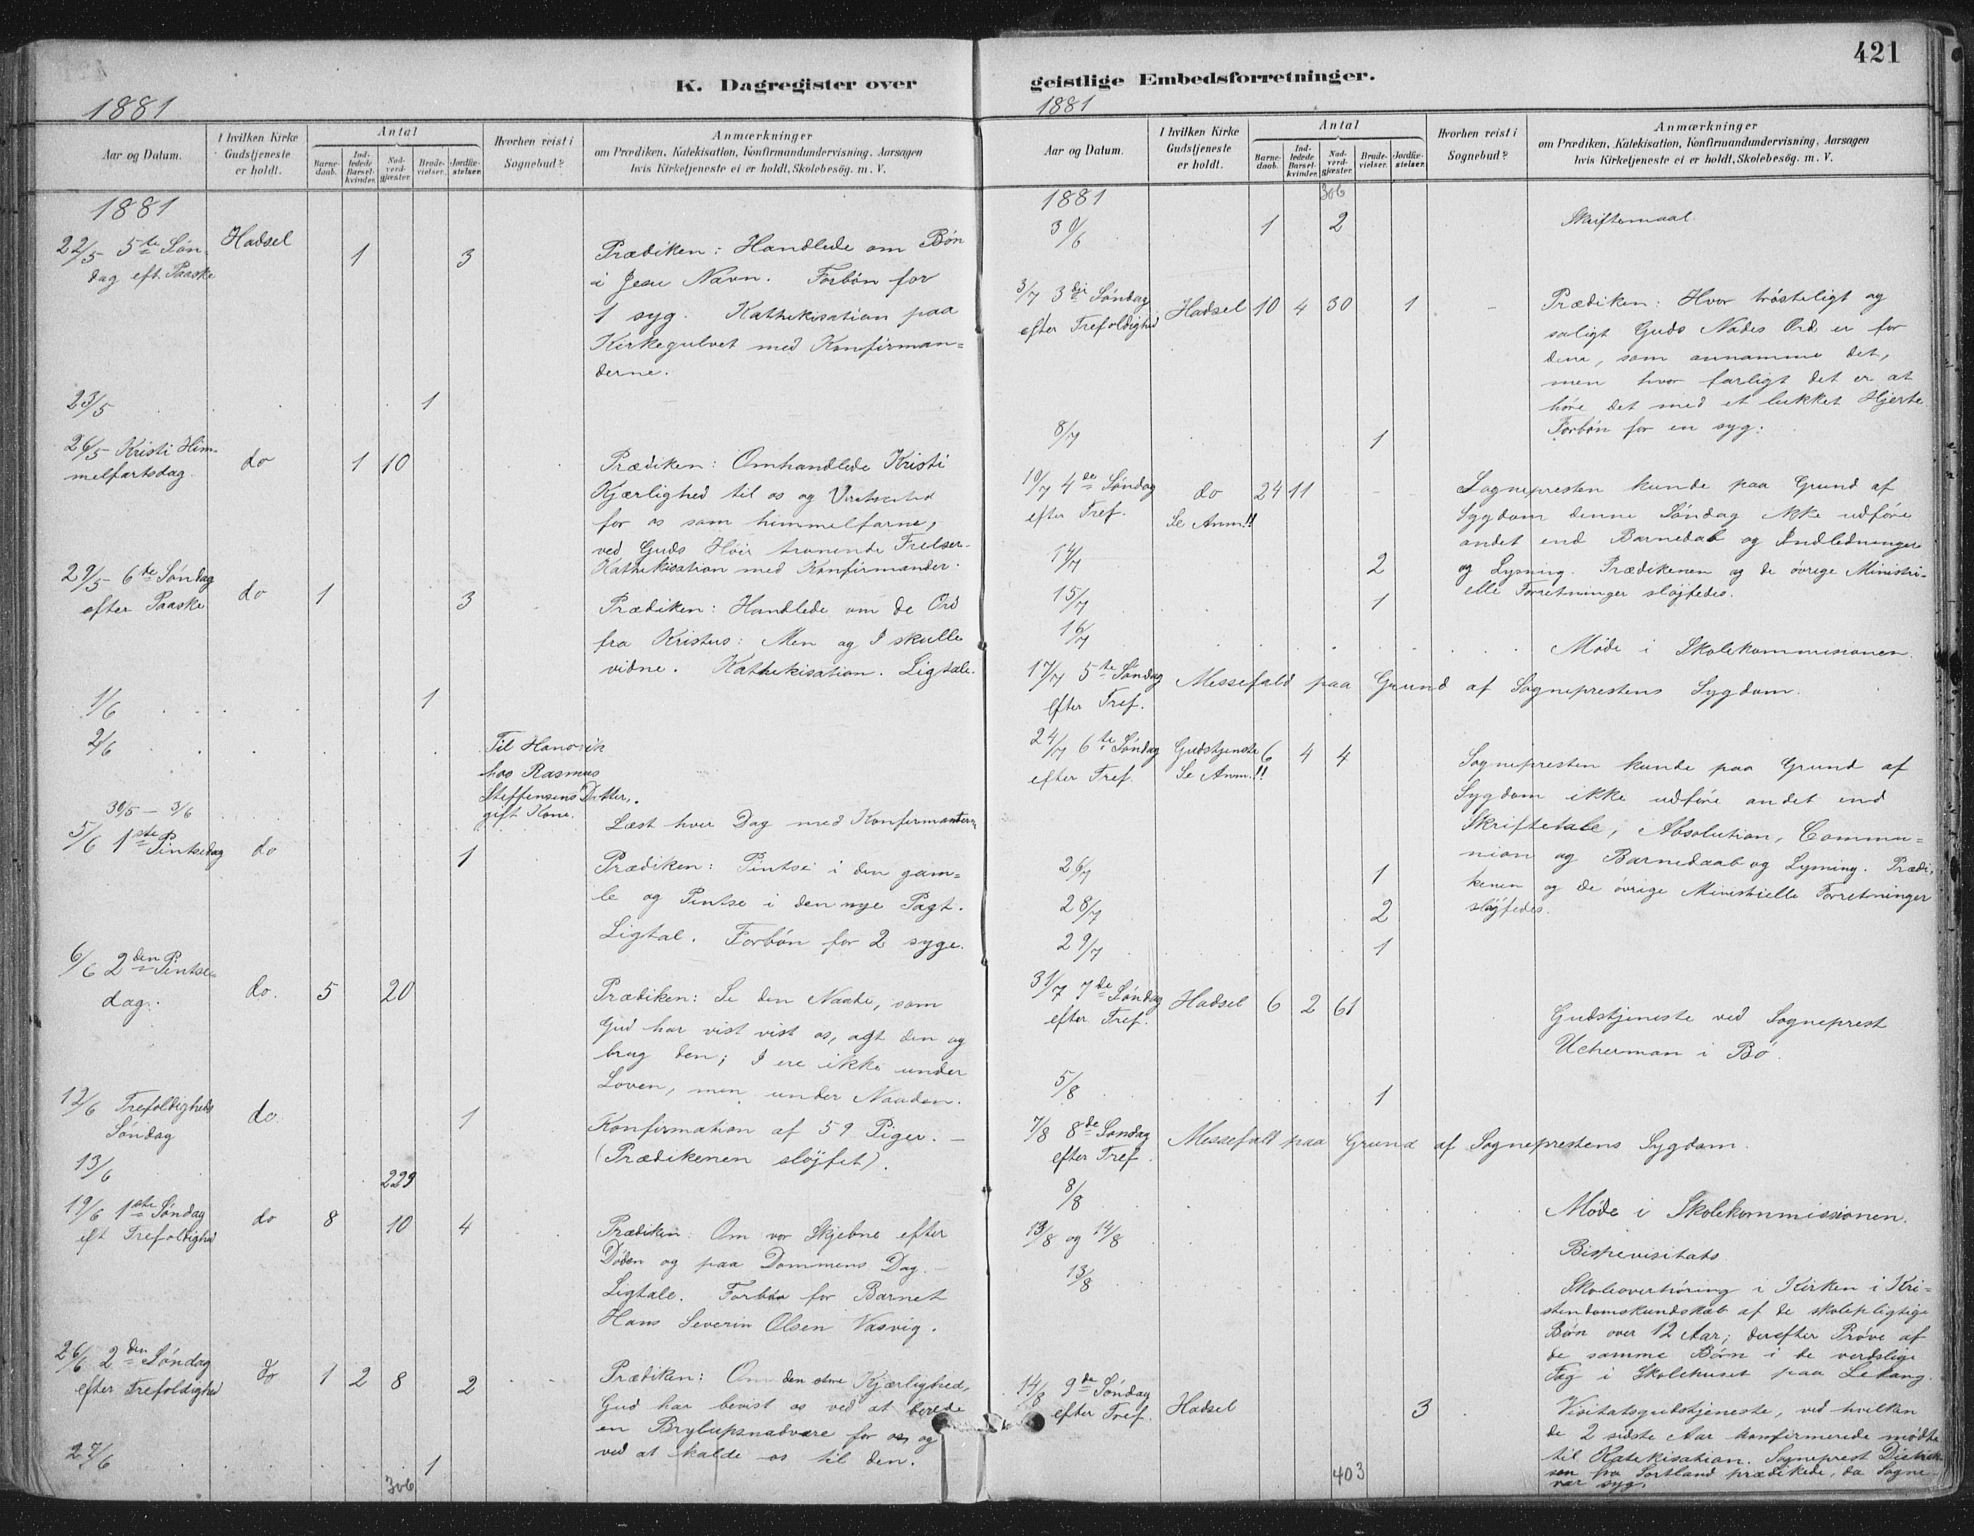 K. Dagregister over
1881
Aar og Datum.
I hvilken Kirke Gudstjeneste er holdt.
Antal
Barnedaab.
Indledede Barselkvinder.
Nadverdgjæster.
Brudevielser.
Jordfæstelser.
Hvorhen reist i Sognebud?
Anmærkninger
om Prædiken, Katekisation, Konfirmandundervisning, Aarsagen
hvis Kirketjeneste ei er holdt, Skolebesøg. m. V.
1881
22/5 5te Søn Hadsel 1 3 Prædiken: Handlede om Bøn
dag eft. Paaske i Jesu Navn. Forbøn for
1 syg. Kathekisation paa
Kirkegulvet med Konfirman=
derne.
23/5 1
26/5 Kristi Him- do 1 10 Prædiken: Omhandlede Kristi
melfartsdag. Kjærlighed til os og
for os som himmelfarne,
ved Guds Høir tronende Frelser.
Kathekisation med Konfirmander.
29/5 6te Søndag do 1 3 Prædiken: Handlede om de Ord
efter Paaske fra Kristus: Men og I skulle
vidne. Kathekisation. Ligtale.
1/6 1
2/6 Til
hos Rasmus
Steffensens Datter,
gift Kone.
30/5 – 3/6 Læst hver Dag med Konfirmanterne
5/6 1ste Pintsedag do 1 Prædiken: Pintse i den gam=
le og Pintse i den nye Pagt.
Ligtal. Forbøn for 2 syge.
6/6 2den Pintse= do. 5 20 Prædiken: Se den Naade, som
dag. Gud har vist vist os, agt den og
brug den; I ere ikke under
Loven, men under Naaden.
12/6 Trefoldigheds do. 1 Konfirmation af 59 Piger. –
Søndag (Prædikenen sløjfet).
13/6 229
19/6 1ste Søndag do 8 10 4 Prædiken: Om vor Skjebne efter
eft Trefoldighed Døden og paa Dommens Dag. –
Ligtale. Forbøn for Barnet
Hans Severin Olsen Vasvig.
26/6 2den Søndag do 1 2 8 2 Prædiken: Om den store Kjærlighed,
efter Trefoldighed Gud har bevist os ved at berede
en Bryllupsnadvere for os, og
ved at kalde os til den.
27/6 1
306
geistlige Embedsforretninger.
421
1881
Aar og Datum.
I hvilken Kirke Gudstjeneste er holdt.
Antal
Barnedaab.
Indledede Barselkvinder.
Nadverdgjæster.
Brudevielser.
Jordfæstelser.
Hvorhen reist i Sognebud?
Anmærkninger
om Prædiken, Katekisation, Konfirmandundervisning, Aarsagen
hvis Kirketjeneste ei er holdt, Skolebesøg. m. V.
1881 306
30/6 1 2 Skriftemaal.
3/7 3dje Søndag Hadsel 10 4 30 1 – Prædiken: Hvor trøsteligt og
efter Trefoldighed saligt Guds Nades Ord er for
dem, som annamme det,
men hvor farligt det er at
høre det med et lukket Hjerte
Forbøn for en syg.
8/7 1
10/7 4de Søndag do 24 11 Sognepresten kunde paa Grund af
efter Tref. Se Anm.!! Sygdom denne Søndag ikke udføre
andet end Barnedab og Indledninger
og Lysning. Prædikenen og de øvrige Ministri-
elle Forretninger sløjfedes.
14/7 2
15/7 1
16/7 Møde i Skolekommisionen.
17/7 5te Søndag Messefald paa Grund af Sogneprestens Sygdom.
efter Tref.
24/7 6te Søndag Gudstjeneste 6 4 4 Sognepresten kunde paa Grund af
efter Tref. Se Anm.!! Sygdom ikke udføre andet end
Skriftetale, Absolution, Commu=
nion og Barnedaab og Lysning. Prædi-
kenen og de øvrige Ministrielle Forretninger
sløjfedes.
26/7 1
28/7 2
29/7 1
31/7 7de Søndag Hadsel 6 2 61 Gudstjeneste ved Sogneprest
efter Tref. Ucherman i Bø.
5/8 1
7/8 8de Søndag Messefald paa Grund af Sogneprestens Sygdom.
efter Tref.
8/8 Møde i Skolekommissionen.
13/8 og 14/8 Bispevisitats
13/8 Skoleoverhøring i Kirken i Kri-
stendomskundskab af de skolepligtige
Børn over 12 Aar; derefter Prøve af
de samme Børn i de verdslige
Fag i Skolehuset paa
14/8 9de Søndag Hadsel 3 Visitatsgudstjeneste, ved hvilken
efter Tref. de 2 sidste Aar konfirmerede mødte
til Katekisation. Sogneprest Dietrich-
sen fra Sortland prædikede, da Sogne
var syg.
403